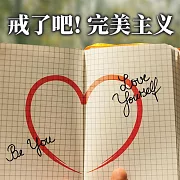 戒了吧！完美主义
Be You
Love
Yourself